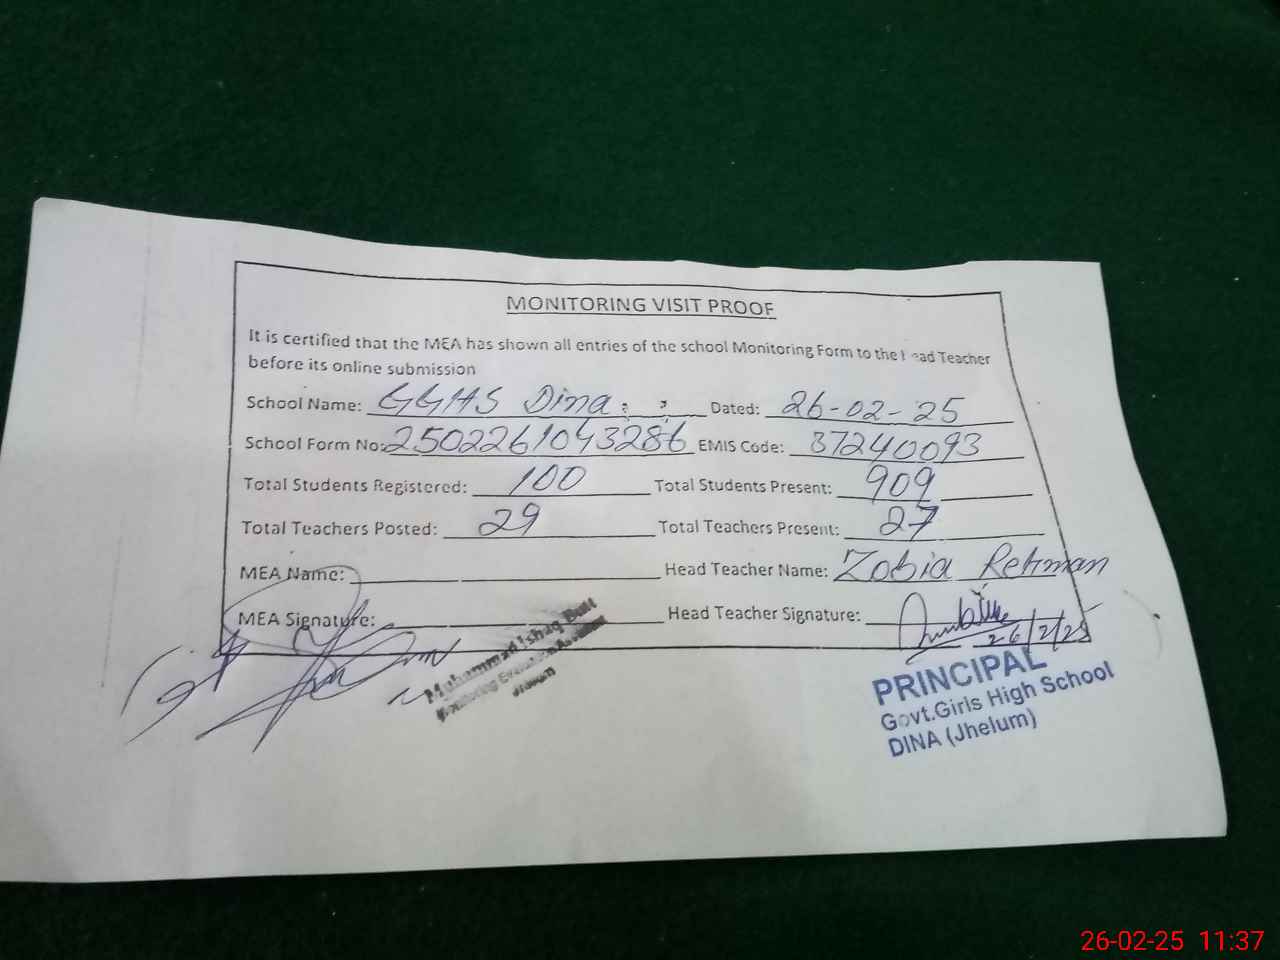 MONITORING VISIT PROOF
It is certified that the MEA has shown all entries of the school Monitoring Form to the Head Teacher
before its online submission
School Name: GGHS Dina Dated: 26-02-25
School Form No: 2502261043286 EMIS Code: 37240093
Total Students Registered: 100 Total Students Present: 909
Total Teachers Posted: 29 Total Teachers Present: 27
MEA Name: Head Teacher Name: Zobia Rehman
MEA Signature: Head Teacher Signature:
26/2/25
Muhammad Ishaq Butt
Monitoring Evaluation Assistant
Jhelum
PRINCIPAL
Govt.Girls High School
DINA (Jhelum)
26-02-25 11:37